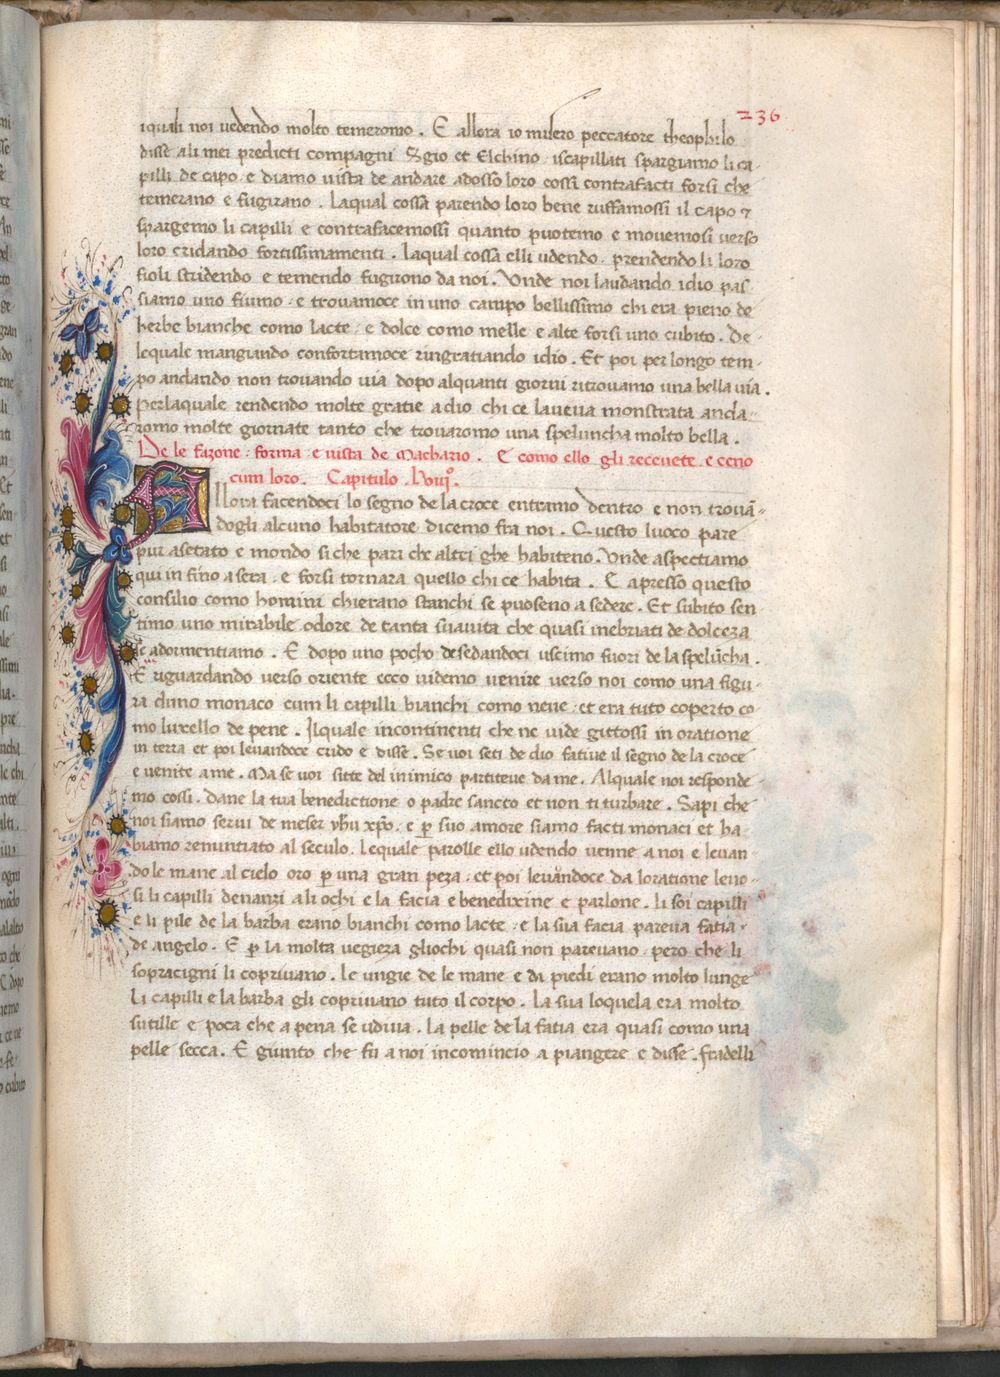 236
iquali noi vedendo molto temeromo . E allora io misero peccatore theophilo
disse ali mei predicti compagni Sgio et Elchino · iscapillati spargiamo li ca-
pilli de capo · e diamo vista de andare adosso loro cossi contrafacti forsi che
temerano e fugirano . laqual cossa parendo loro bene ruffamossi il capo 7
spargemo li capilli e contrafacemossi quanto puotemo e movemosi verso
loro cridando fortissimamenti . laqual cossa elli udendo · prendendo li loro
fioli stridendo e temendo fugirono da noi . Unde noi laudando idio pas
siamo uno fiumo · e trovamoce in uno campo bellissimo chi era pieno de
herbe bianche como lacte · e dolce como melle e alte forsi uno cubito . De
lequale mangiando confortamoce ringratiando idio . Et poi per longo tem-
po andando non trovando via dopo alquanti giorni ritrovamo una bella via .
perlaquale rendendo molte gratie a dio chi ce laveva monstrata anda-
romo molte giornate tanto che trovaromo una speluncha molto bella .
De le fazone · forma · e vista de Machario . E como ello gli recevete · e ceno
cum loro . Capitulo .
Allora facendoci lo segno de la croce entramo dentro e non trovā-
dogli alcuno habitatore dicemo fra noi . Questo luoco pare
pur asetato e mondo si che pari che altri ghe habiteno. Unde aspectiamo
qui in fino a sera · e forsi tornara quello chi ce habita . E apresso questo
consilio como homini chierano stanchi se puoseno a sedere . Et subito sen
timo uno mirabile odore de tanta suavita che quasi inebriati de dolceza
se adormentiamo . E dopo uno pocho desedandoci uscimo fuori de la spelūcha .
E riguardando verso oriente ecco videmo venire verso noi como una figu-
ra duno monaco cum li capilli bianchi como neve · et era tuto coperto co-
mo luxello de pene . Ilquale incontinenti che ne vide gittossi in oratione
in terra et poi levandoce crido e disse . Se voi seti de dio fative il segno de la croce
e venite a me . Ma se voi sitte del inimico partiteve da me . Alquale noi responde-
mo cossi . dane la tua benedictione o padre sancto et non ti turbare . Sapi che
noi siamo servi de meser yhū xp̄o · e p̲ suo amore siamo facti monaci et ha
biamo renuntiato al seculo . lequale parolle ello udendo venne a noi e levan
do le mane al cielo oro p̲ una gran peza · et poi levāndoce da loratione levo-
si li capilli denanzi a li ochi e la facia e benedixine e parlone . li soi capilli
e li pile de la barba erano bianchi como lacte · e la sua facia pareva fatia ·
de angelo . E p̲ la molta vegieza gliochi quasi non parevano · pero che li
sopracigni li coprivano . le ungie de le mane e di piedi erano molto lunge
li capilli e la barba gli coprivano tuto il corpo . la sua loquela era molto
sutille e poca che a pena se udiva . la pelle de la fatia era quasi como una
pelle secca . E giunto che fu a noi incomincio a piangere e disse . fradelli